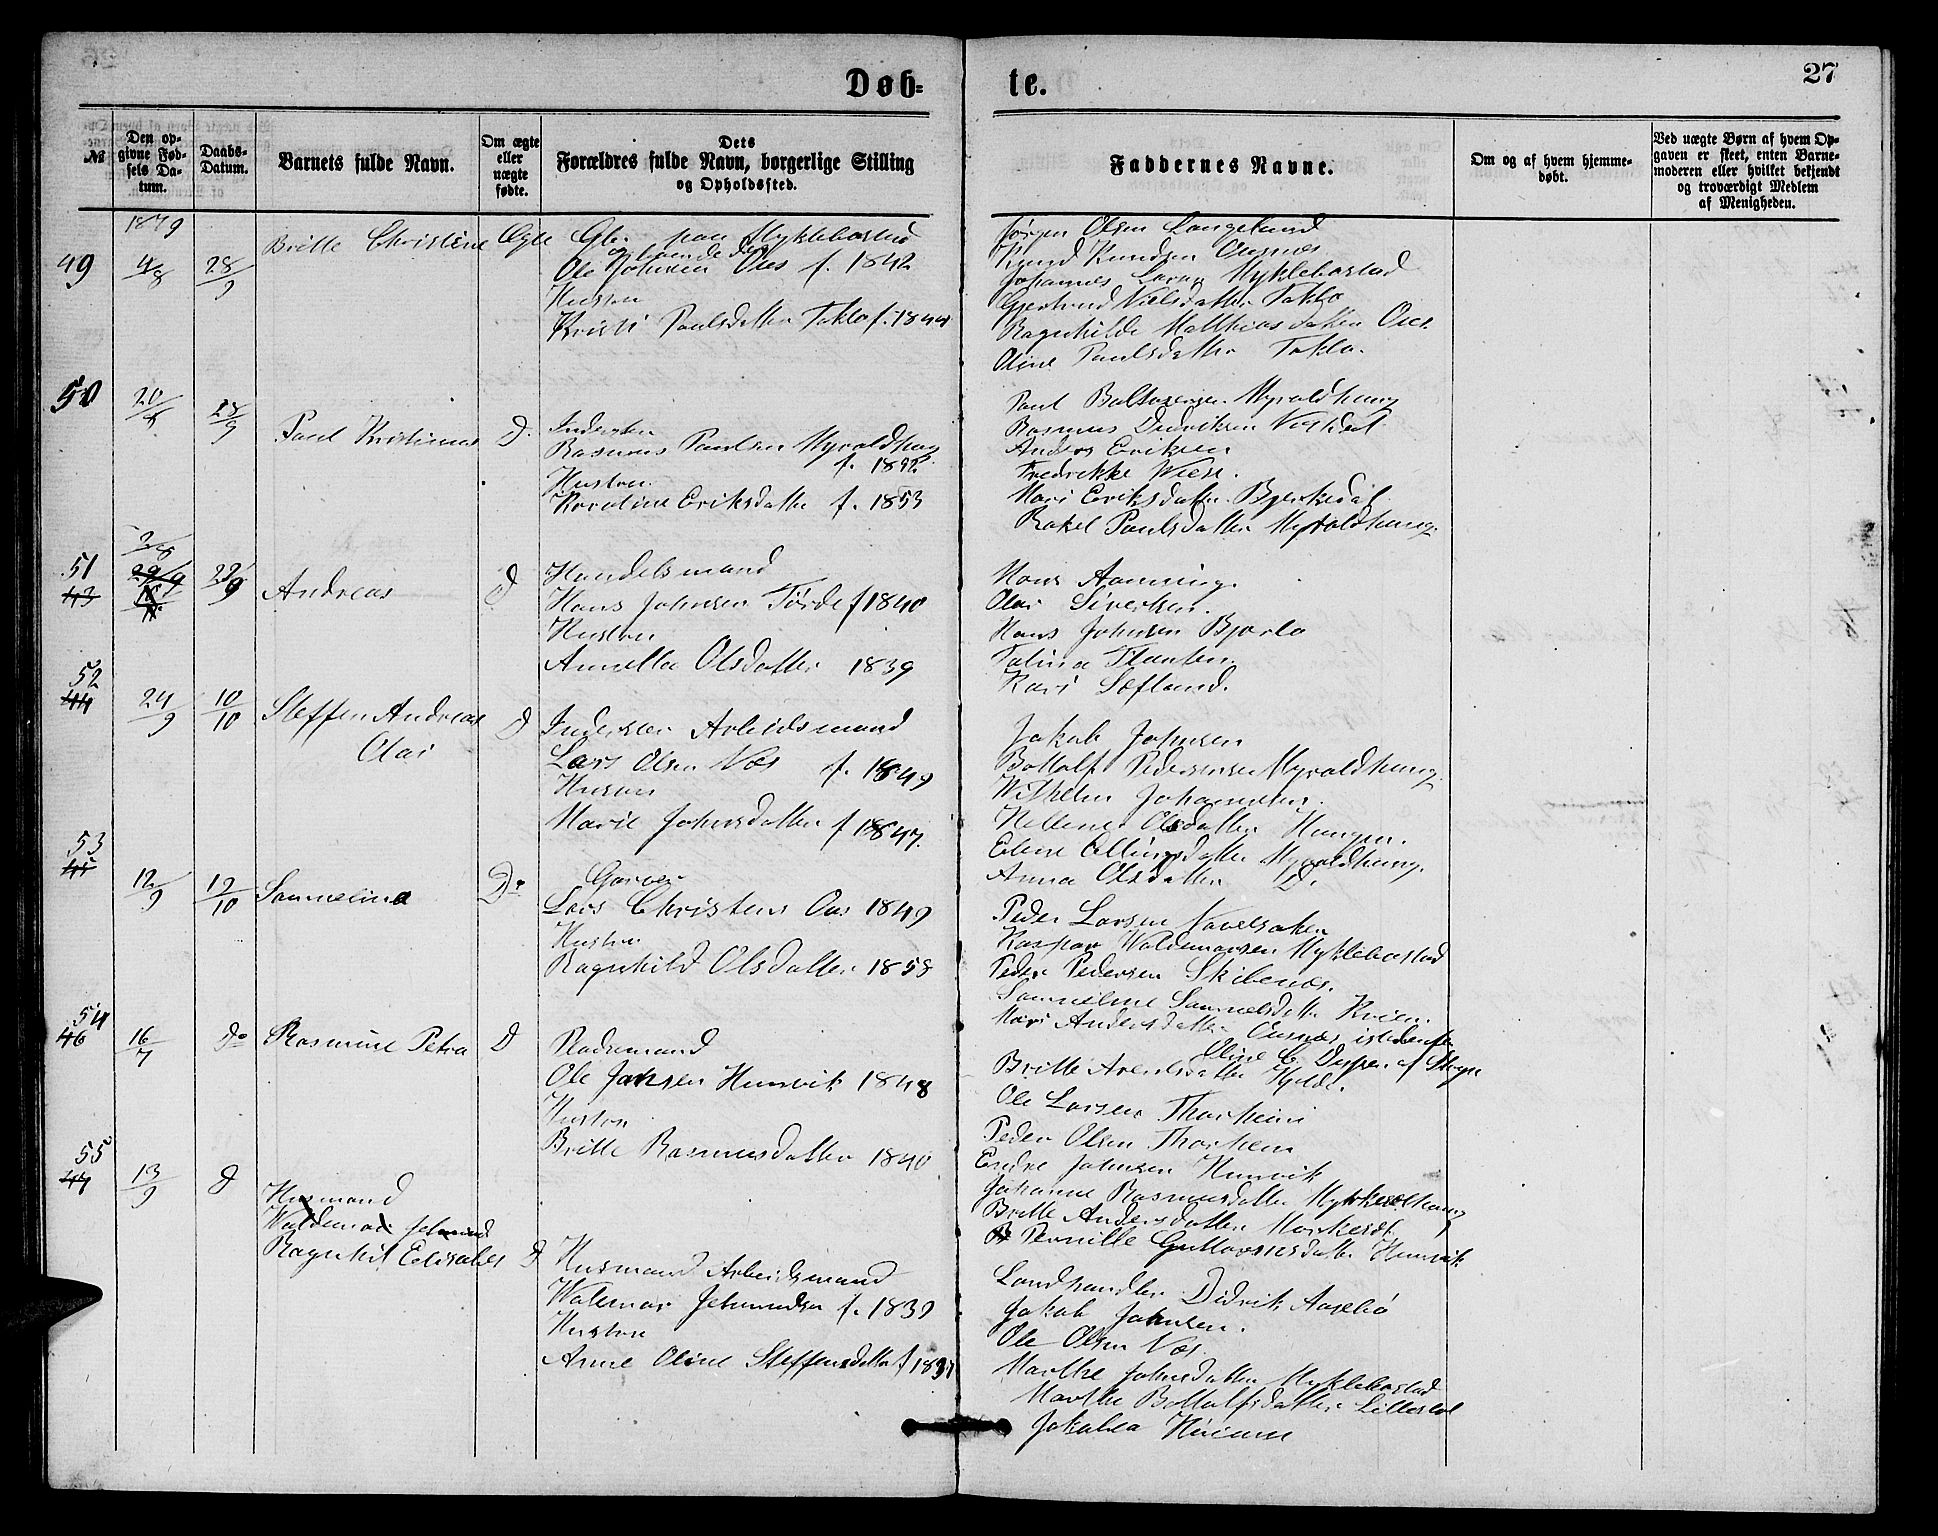 Døb-
te.
27
№
Den op-
givne Fød-
sels Da-
tum.
Daabs-
Datum.
Barnets fulde Navn.
Om ægte
eller
uægte
fødte.
Dets
Forældres fulde Navn, borgerlige Stilling
og Opholdssted.
Faddernes Navne.
Om og af hvem hjemme-
døbt.
Ved uægte Børn af hvem Op-
gaven er skeet, enten Barne-
moderen eller hvilket bekjendt
og troværdigt Medlem
af Menigheden.
1879
49
4/8
28/9
Britte Christine
Ægte
Gbr. paa Myklebostad
Ole Johnsen Oies f. 1842
Hustru
Kristi Paulsdatter Taklo f. 1844
Jørgen Olsen Langeland
Knud Knudsen
Johannes Larsen Myklebostad
Gjertrud Nielsdatter Taklo
Ragnhilde Matthiasdatter Oies
Oline Paulsdatter Taklo.
50
20/8
28/9
Paul Kristinus
D.
Inderster
Rasmus Paulsen Myroldhaug
Hustru
Karoline Eriksdatter f. 1853
Paul Baltsersen Myroldhaug
Rasmus Didriksen
Anders Eriksen
Fredrikke Wiese.
Mari Eriksdatter Bjerkedal
Rakel Paulsdatter Myroldhaug.
51
43
29/9
Andreas
D
Handelsmand
Hans Johnsen Førde f 1840
Hustru
Annette Olsdatter 1839
Hans Aanning.
Olai Sivertsen.
Hans Johnsen Bjorlo
Kari Sefland.
52
44
24/9
10/10
Steffen Andreas
Olai
D
Inderster Arbeidsmand
Lars Olsen Nos f. 1849
Hustru
Marie Johnsdatter f 1847.
Jakob Johnsen
Bottolf Pedersen Myroldhaug.
Wilhelm Johannesen.
Hellene Olsdatter Haugen.
Eline Ellingsdatter Myroldhaug.
Anna Olsdatter D.
53
45
12/9
12/10
Sammeline
Do
Garver
Lars Christens Oies 1849
Hustru
Ragnhild Olsdatter 1858
Peder Larsen Navelsaker
Kaspar Waldemarsen Myklebostad
Peder Pedersen Skibenes.
Sammeline Sammelsdatter Kvien.
Mari Andersdatter
Britte Arentsdatter Hjelde.
54
46
16/7
Do
Rasmine Petra
D
Pladsmand
Ole Jansen Hunvik 1848
Hustru
Britte Rasmusdatter 1840
Ole Larsen Thorheim
Peder Olsen Thorheim
Endre Johnsen Hunvik
Johanne Rasmusdatter
Britte Andersdatter
Pernille Gullaksdatter Hunvik
55
47
13/9
D
Husmand
Ragnhil Elisabet
D
Husmand Arbeidsmand
Walemar Jetmundsen f. 1839
Hustru
Anne Oline Steffensdatter
Landhandler Didrik Aaselid
Jakob Johnsen.
Ole Olsen Nos
Marthe Johnsdatter Myklebostad
Marthe Bottolfsdatter Lillestol
Jakobea